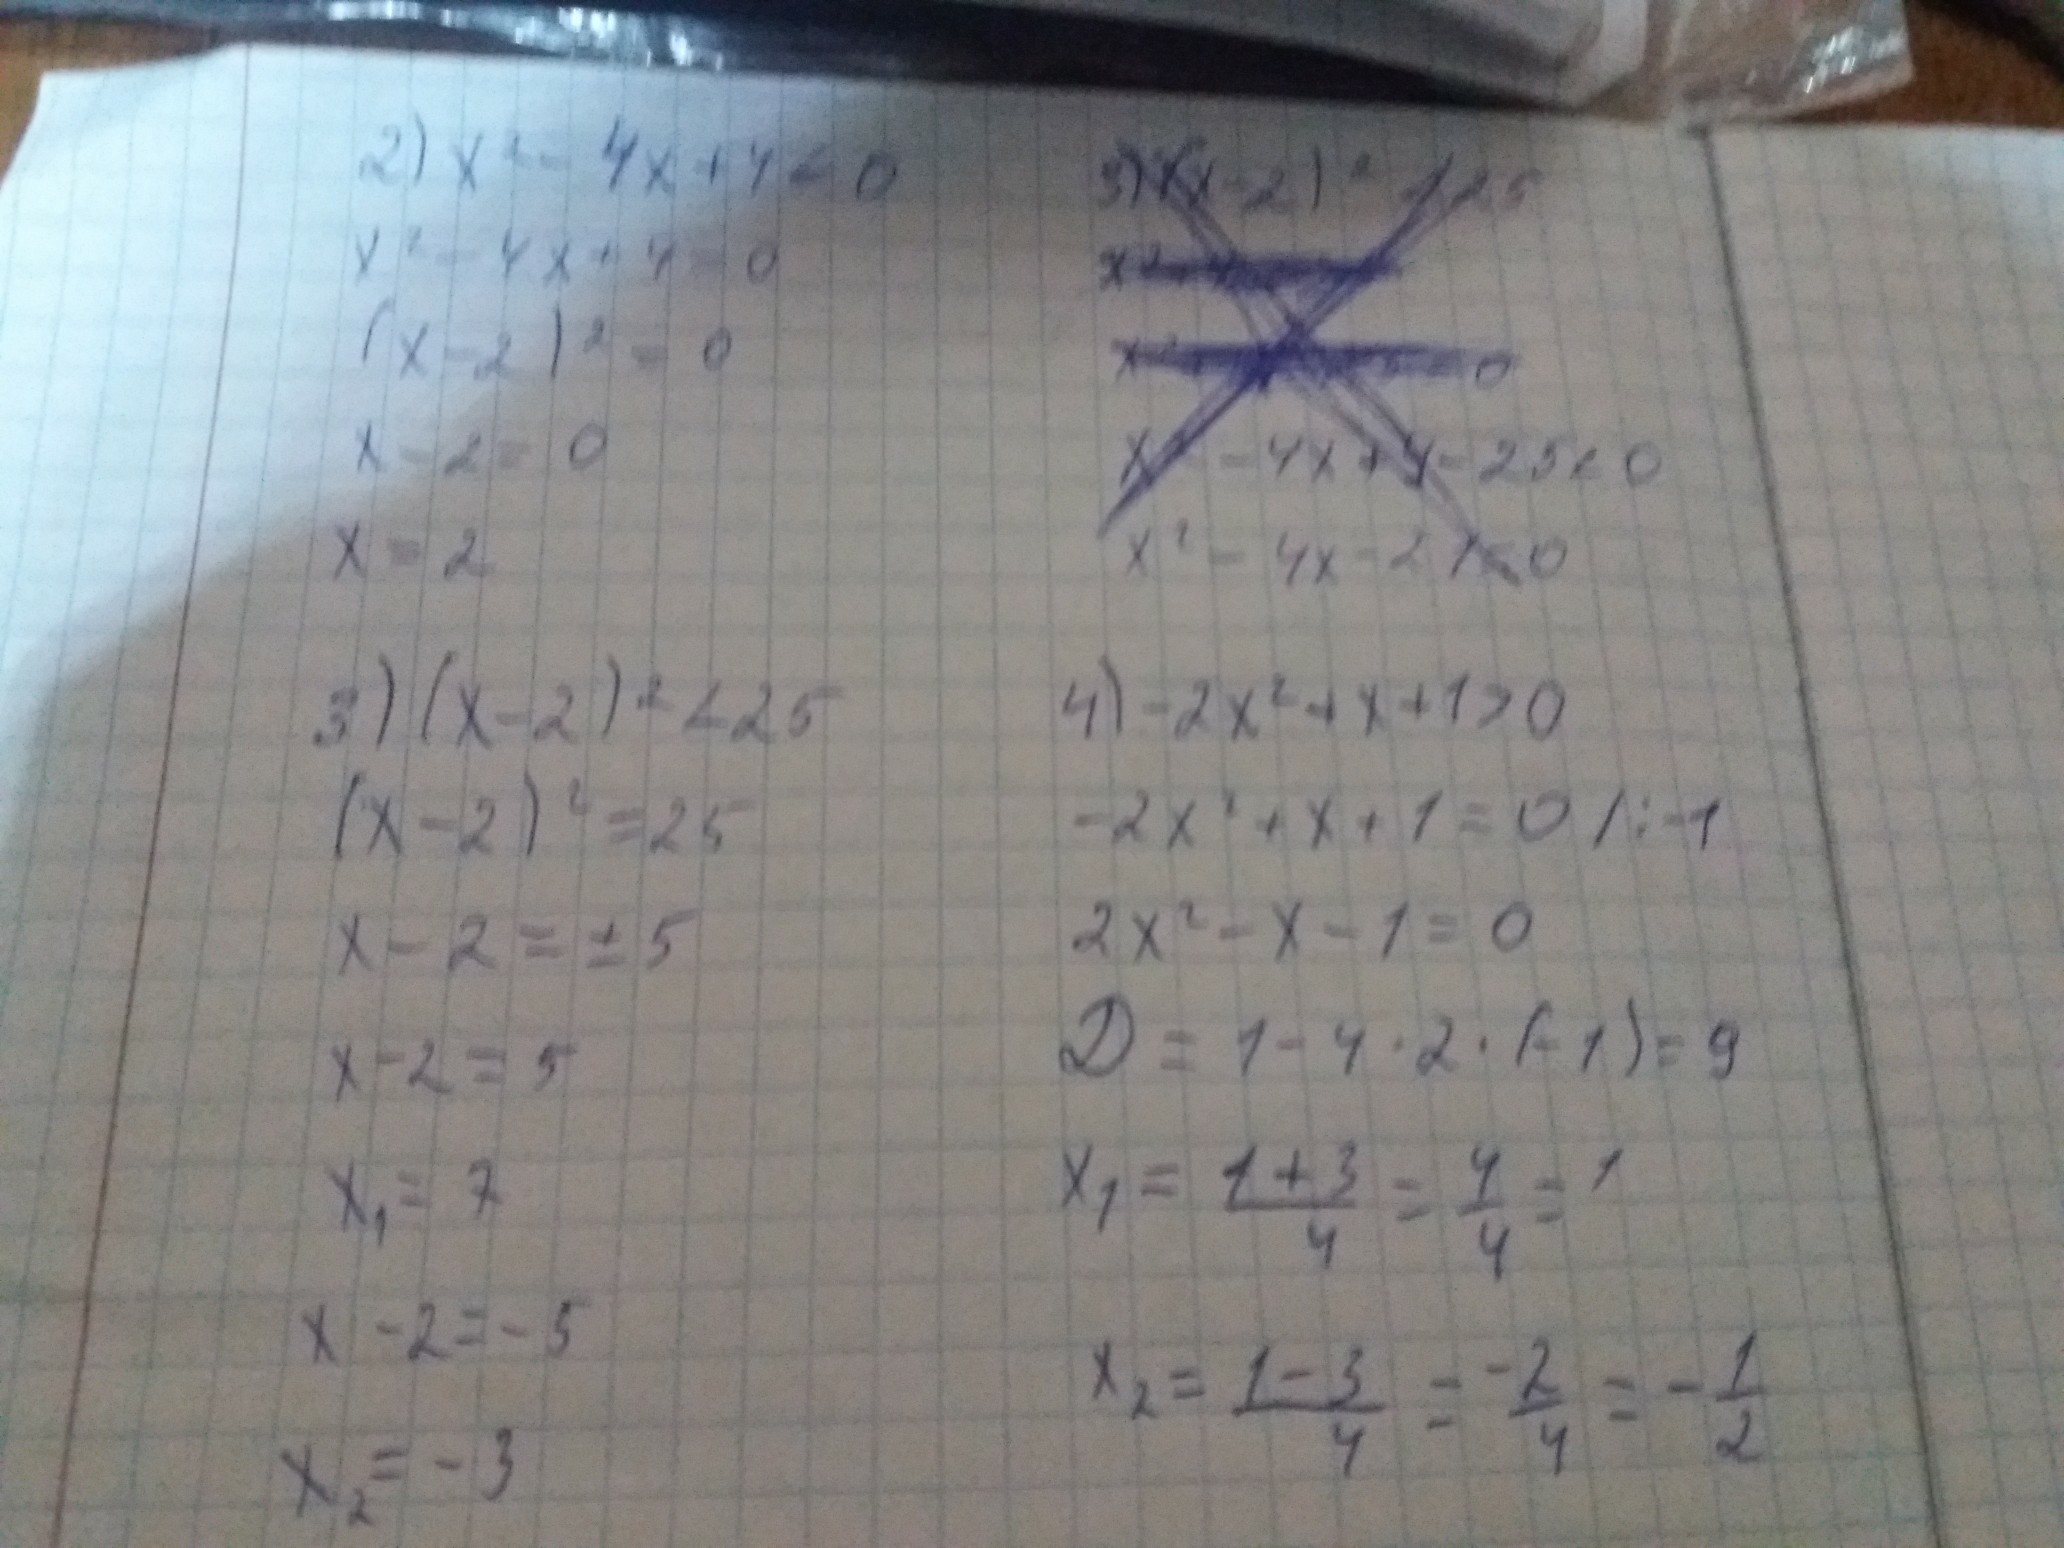 2) x² - 4x + 4 < 0
x² - 4x + 4 = 0
(x - 2)² = 0
x - 2 = 0
x = 2
3) (x - 2)² < 25
x² - 4x + 4 - 25 < 0
x² - 4x - 21 < 0
3) (x - 2)² < 25
(x - 2)² = 25
x - 2 = ± 5
x - 2 = 5
x₁ = 7
x - 2 = - 5
x₂ = - 3
4) -2x² + x + 1 > 0
-2x² + x + 1 = 0 / : -1
2x² - x - 1 = 0
D = 1 - 4 · 2 · (-1) = 9
x₁ = (1 + 3)/4 = 4/4 = 1
x₂ = (1 - 3)/4 = -2/4 = - 1/2